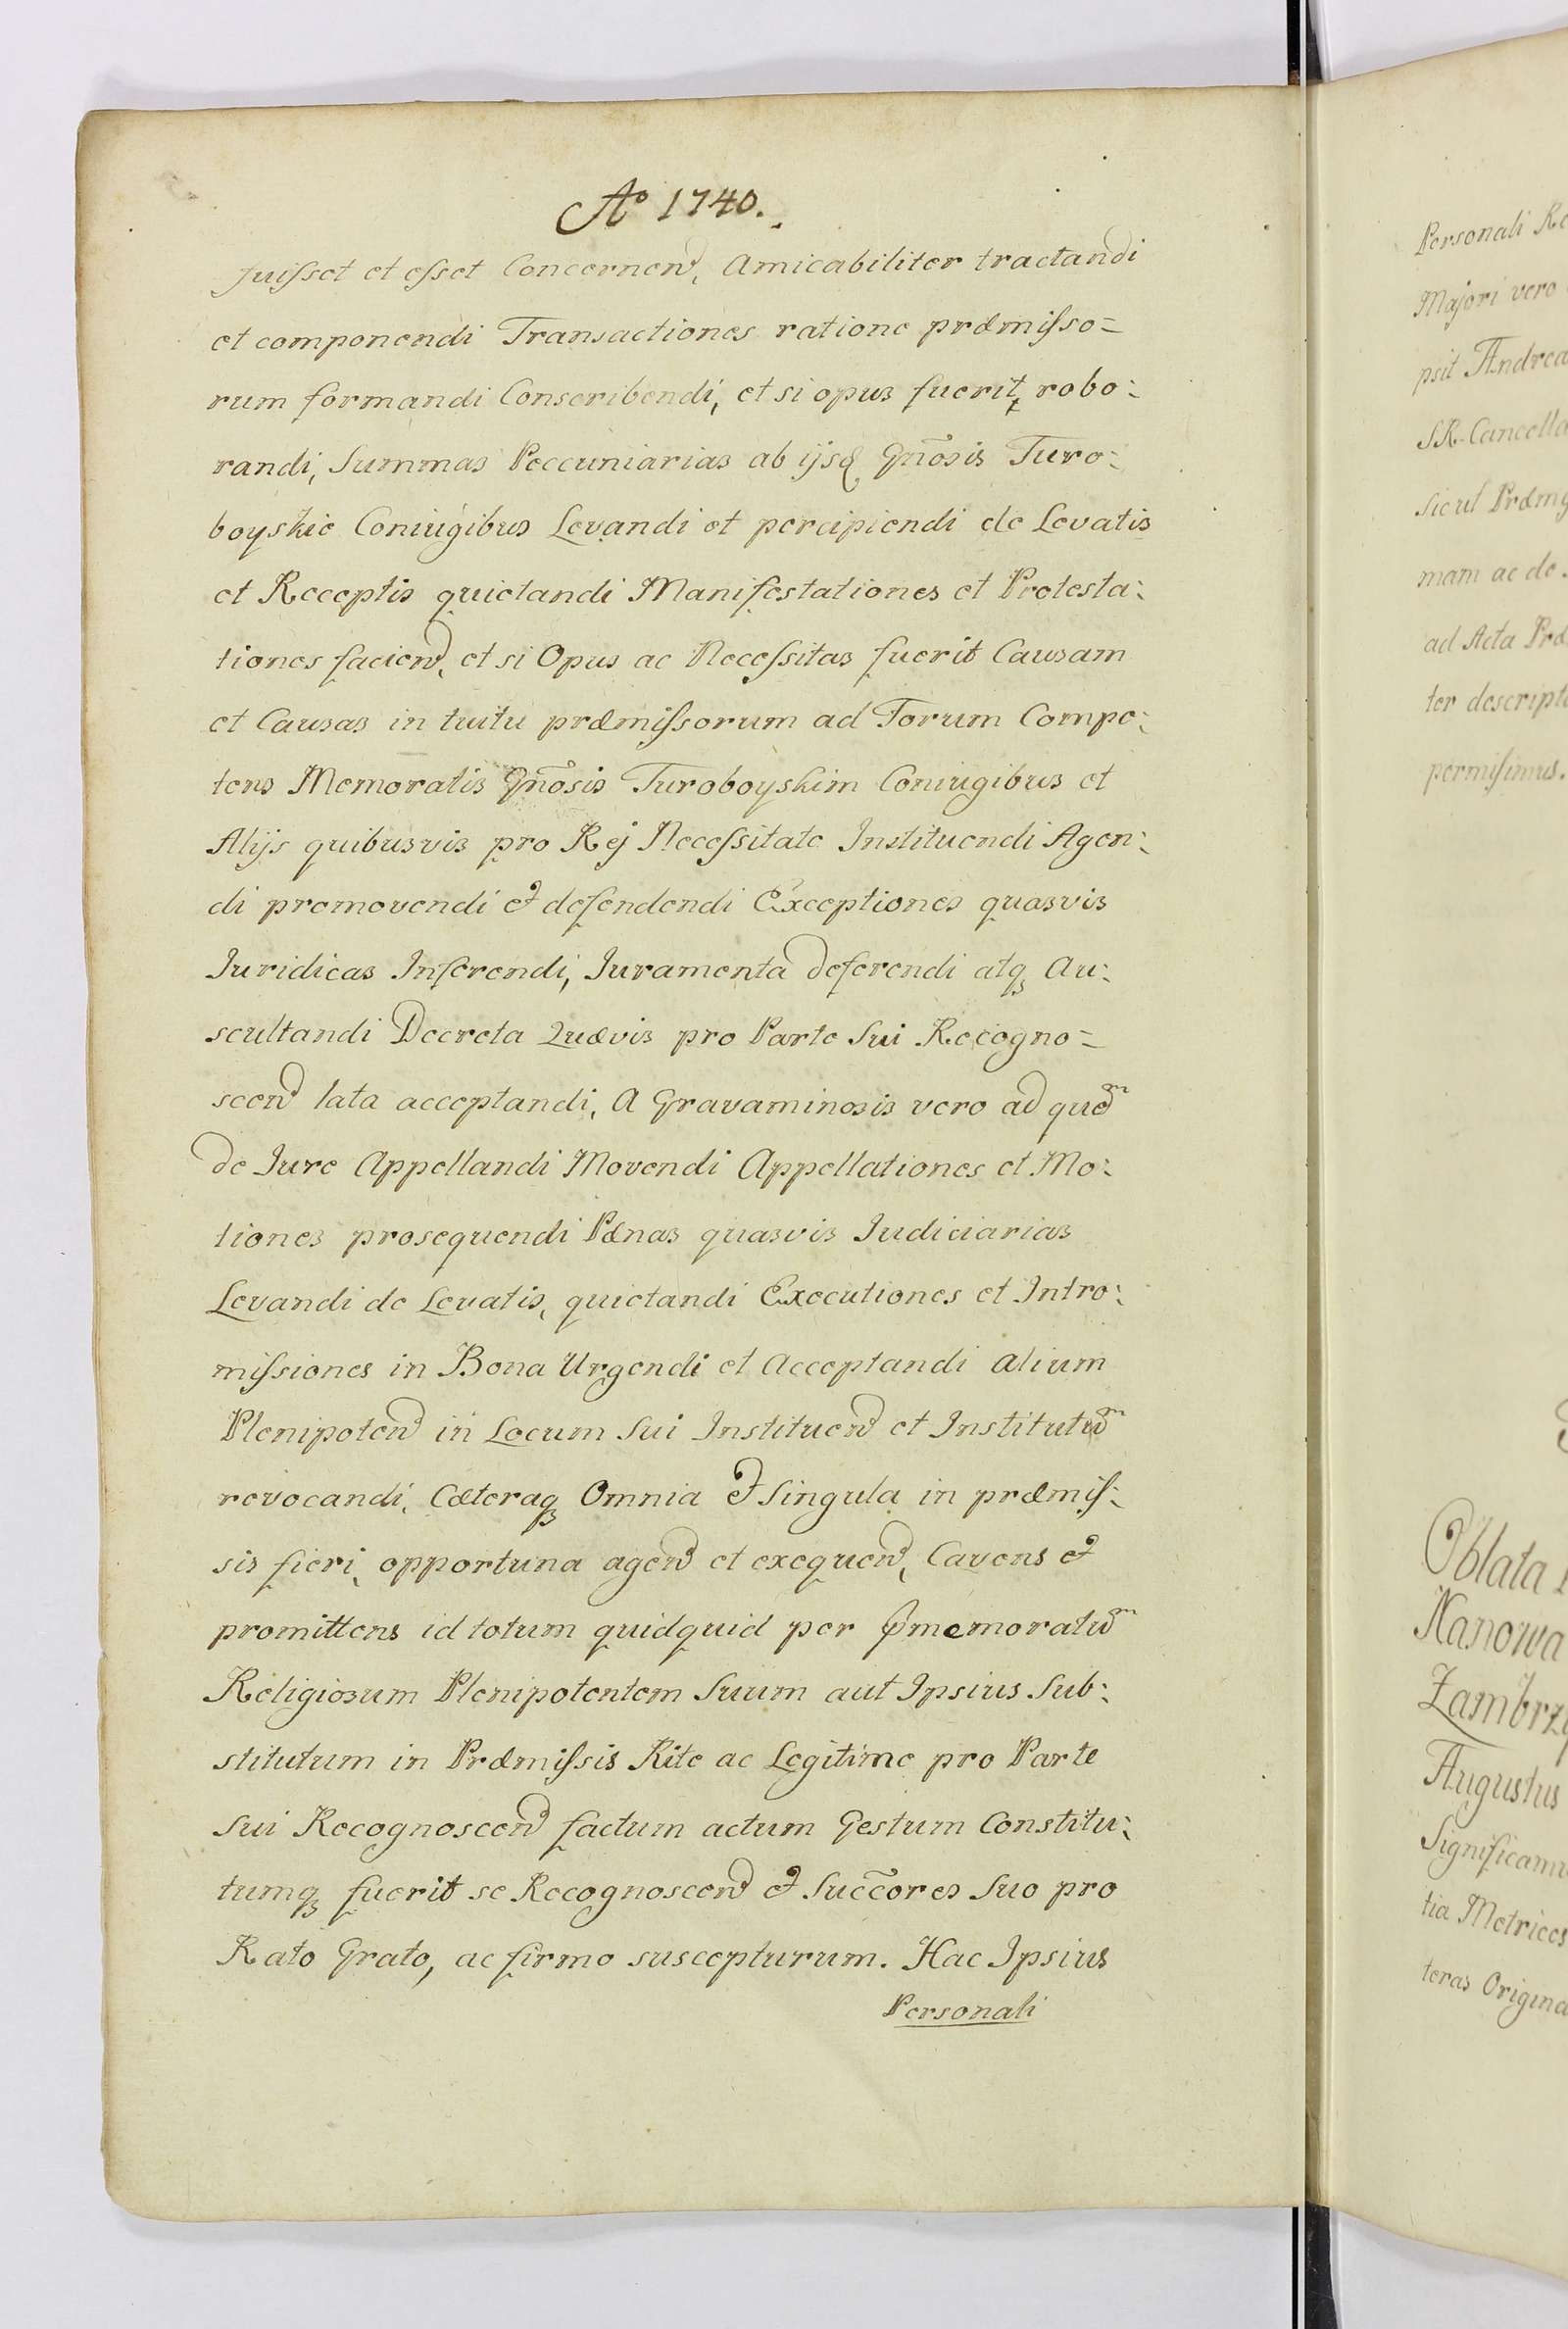 Ao 1740.
fuisset et esset Concernen, Amicabiliter tractandi
et componendi Transactiones ratione præmisso=
rum formandi Conscribendi, et si opus fuerit, robo:
randi, Summas Peccuniarias ab ijsq Gnosis Turo:
boyskie Coniugibus Levandi et percipiendi de Levatis
et Receptis quietandi Manifestationes et Protesta:
tiones facien, et si Opus ac Necessitas fuerit Causam
et Causas in tuitu præmissorum ad Forum Compe:
tens Memoratis Gnosis Turoboyskim Coniugibus et
Alijs quibusvis pro Rej Necessitate Instituendi Agen:
di promovendi et defendendi Exceptiones quasvis
Iuridicas Inferendi, Iuramenta deferendi atq Au:
scultandi Decreta Quævis pro Parte Sui Recogno=
scen lata acceptandi, A Gravaminosis vero ad quem
de Iure Appellandi Movendi Appellationes et Mo:
tiones prosequendi Pænas quasvis Iudiciarias
Levandi de Levatis, quietandi Executiones et Intro:
missiones in Bona Urgendi et Acceptandi alium
Plenipoten in Locum Sui Instituen et Institutum
revocandi, Cæteraq Omnia et Singula in præmis:
sis fieri, opportuna agen et exequen, Cavens et
promittens id totum quidquid per pmemoratum
Religiosum Plenipotentem Suum aut Ipsius Sub:
stitutum in Præmissis Rite ac Legitime pro Parte
Sui Recognoscen factum actum Gestum Constitu:
tumq fuerit se Recognoscen et Succores Suo pro
Rato Grato, ac firmo suscepturum. Hac Ipsius
Personali
Personali
Majori vero
psit Andrea
SR. Cancella
Sicut
mam ac de
ad Acta Præ
ter descript
permisimus.
Oblata
Kanowa
Zambrz
Augustus
Significam
tia Metrices
teras Origina